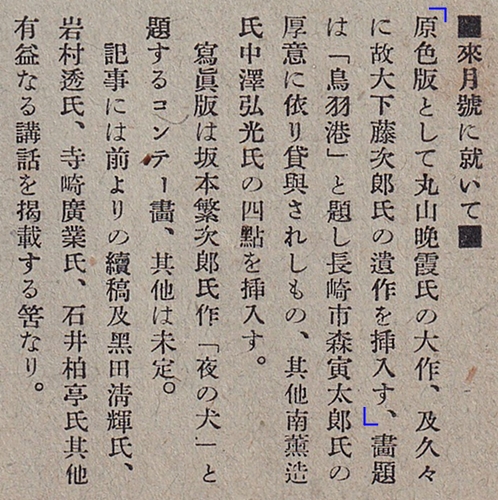 ■來月號に就いて■
原色版として丸山晩霞氏の大作、及久々
に故大下藤次郎氏の遺作を挿入す、畵題
は「鳥羽港」と題し長崎市森寅太郎氏の
厚意に依り貸與されしもの、其他南薫造
氏中澤弘光氏の四點を挿入す。
寫眞版は坂本繁次郎氏作「夜の犬」と
題するコンテー畵、其他は未定。
記事には前よりの續稿及黑田淸輝氏、
岩村透氏、寺崎廣業氏、石井柏亭氏其他
有益なる講話を揭載する筈なり。